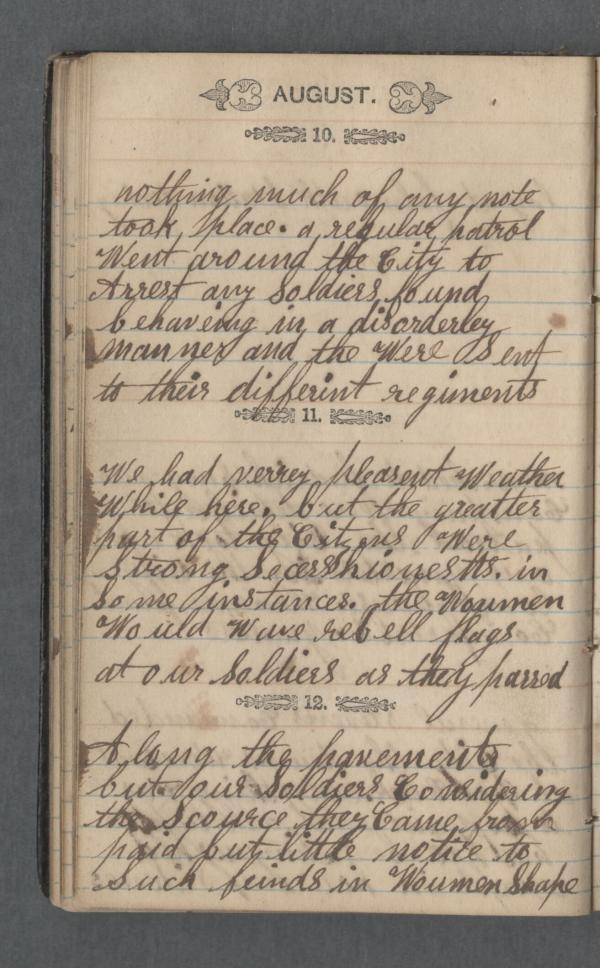 AUGUST.
10.
nothing much of any note
took place. a regular patrol
Went around the City to
Arrest any Soldiers found
behaveing in a disorderley
manner and the Were Sent
to their differint regiments
11.
We had verrey plesent Weather
While here. but the greatter
part of the Citizens Were
Strong Secesshionests. in
some instances. the Woumen
Would Wave rebell flags
at our Soldiers as they passed
12.
Along the pavements
but our Soldiers Considering
the Scource they Came from
paid but little notice to
Such feinds in Woumen Shape